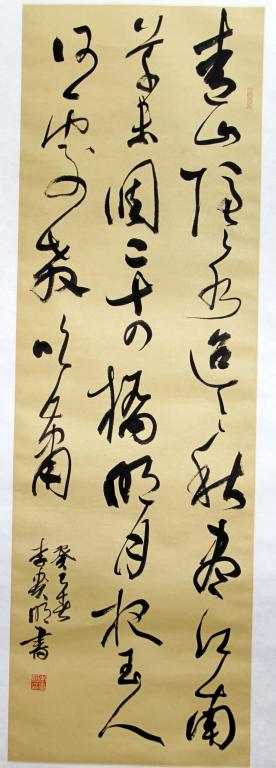 青山隐々水迢々秋尽江南
草未凋二十四橋明月夜玉人
何處教吹簫
癸巳春
李贵明書